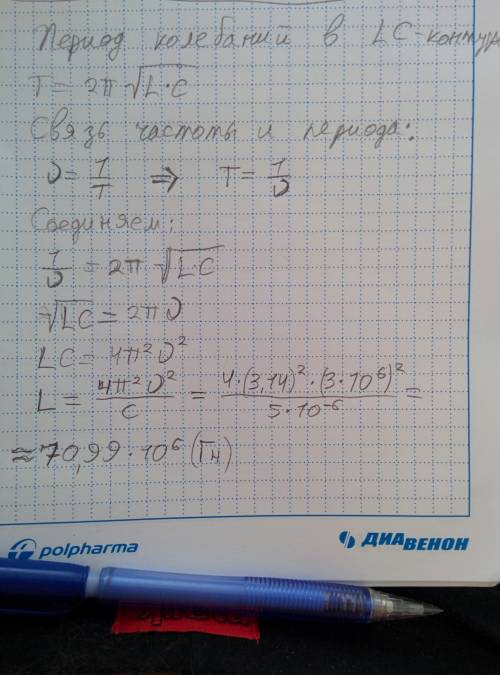 Период колебаний в LC-контуре
T = 2π √L·C
Связь частоты и периода:
υ = 1/T ⇒ T = 1/υ
Соединяем:
1/υ = 2π √L·C
√LC = 2πυ
LC = 4π²υ²
L = 4π²υ²/C = 4·(3,14)²·(3·10⁶)²/5·10⁻⁶ =
≈ 70,99·10⁶ (Гн)
polpharma
ДИАВЕНОН